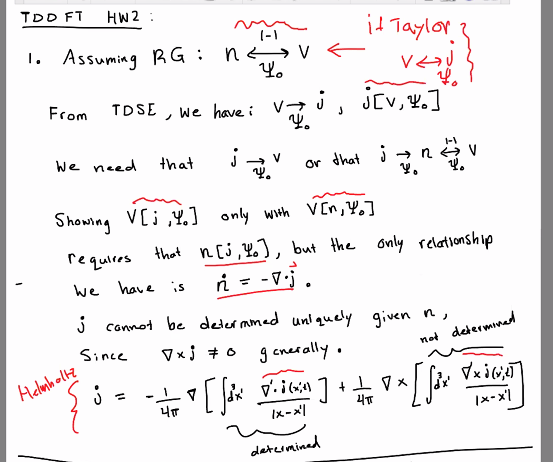 TDDFT HW2 :
1. Assuming RG : n ⟷ V ⟵ if Taylor
1-1
Ψ₀
V ⟷ j
Ψ₀
From TDSE, we have : V → j , j[V, Ψ₀]
Ψ₀
We need that j → V or that j → n ⟷ V
Ψ₀ Ψ₀ 1-1 Ψ₀
Showing V[j, Ψ₀] only with V[n, Ψ₀]
requires that n[j, Ψ₀], but the only relationship
we have is ṅ = -∇·j.
j cannot be determined uniquely given n,
Since ∇×j ≠ 0 generally.
not determined
Helmholtz { j = -1/4π ∇ [∫d³x' ∇'·j(x',t)/|x-x'|] + 1/4π ∇ × [∫d³x' ∇'×j(x',t)/|x-x'|]
determined